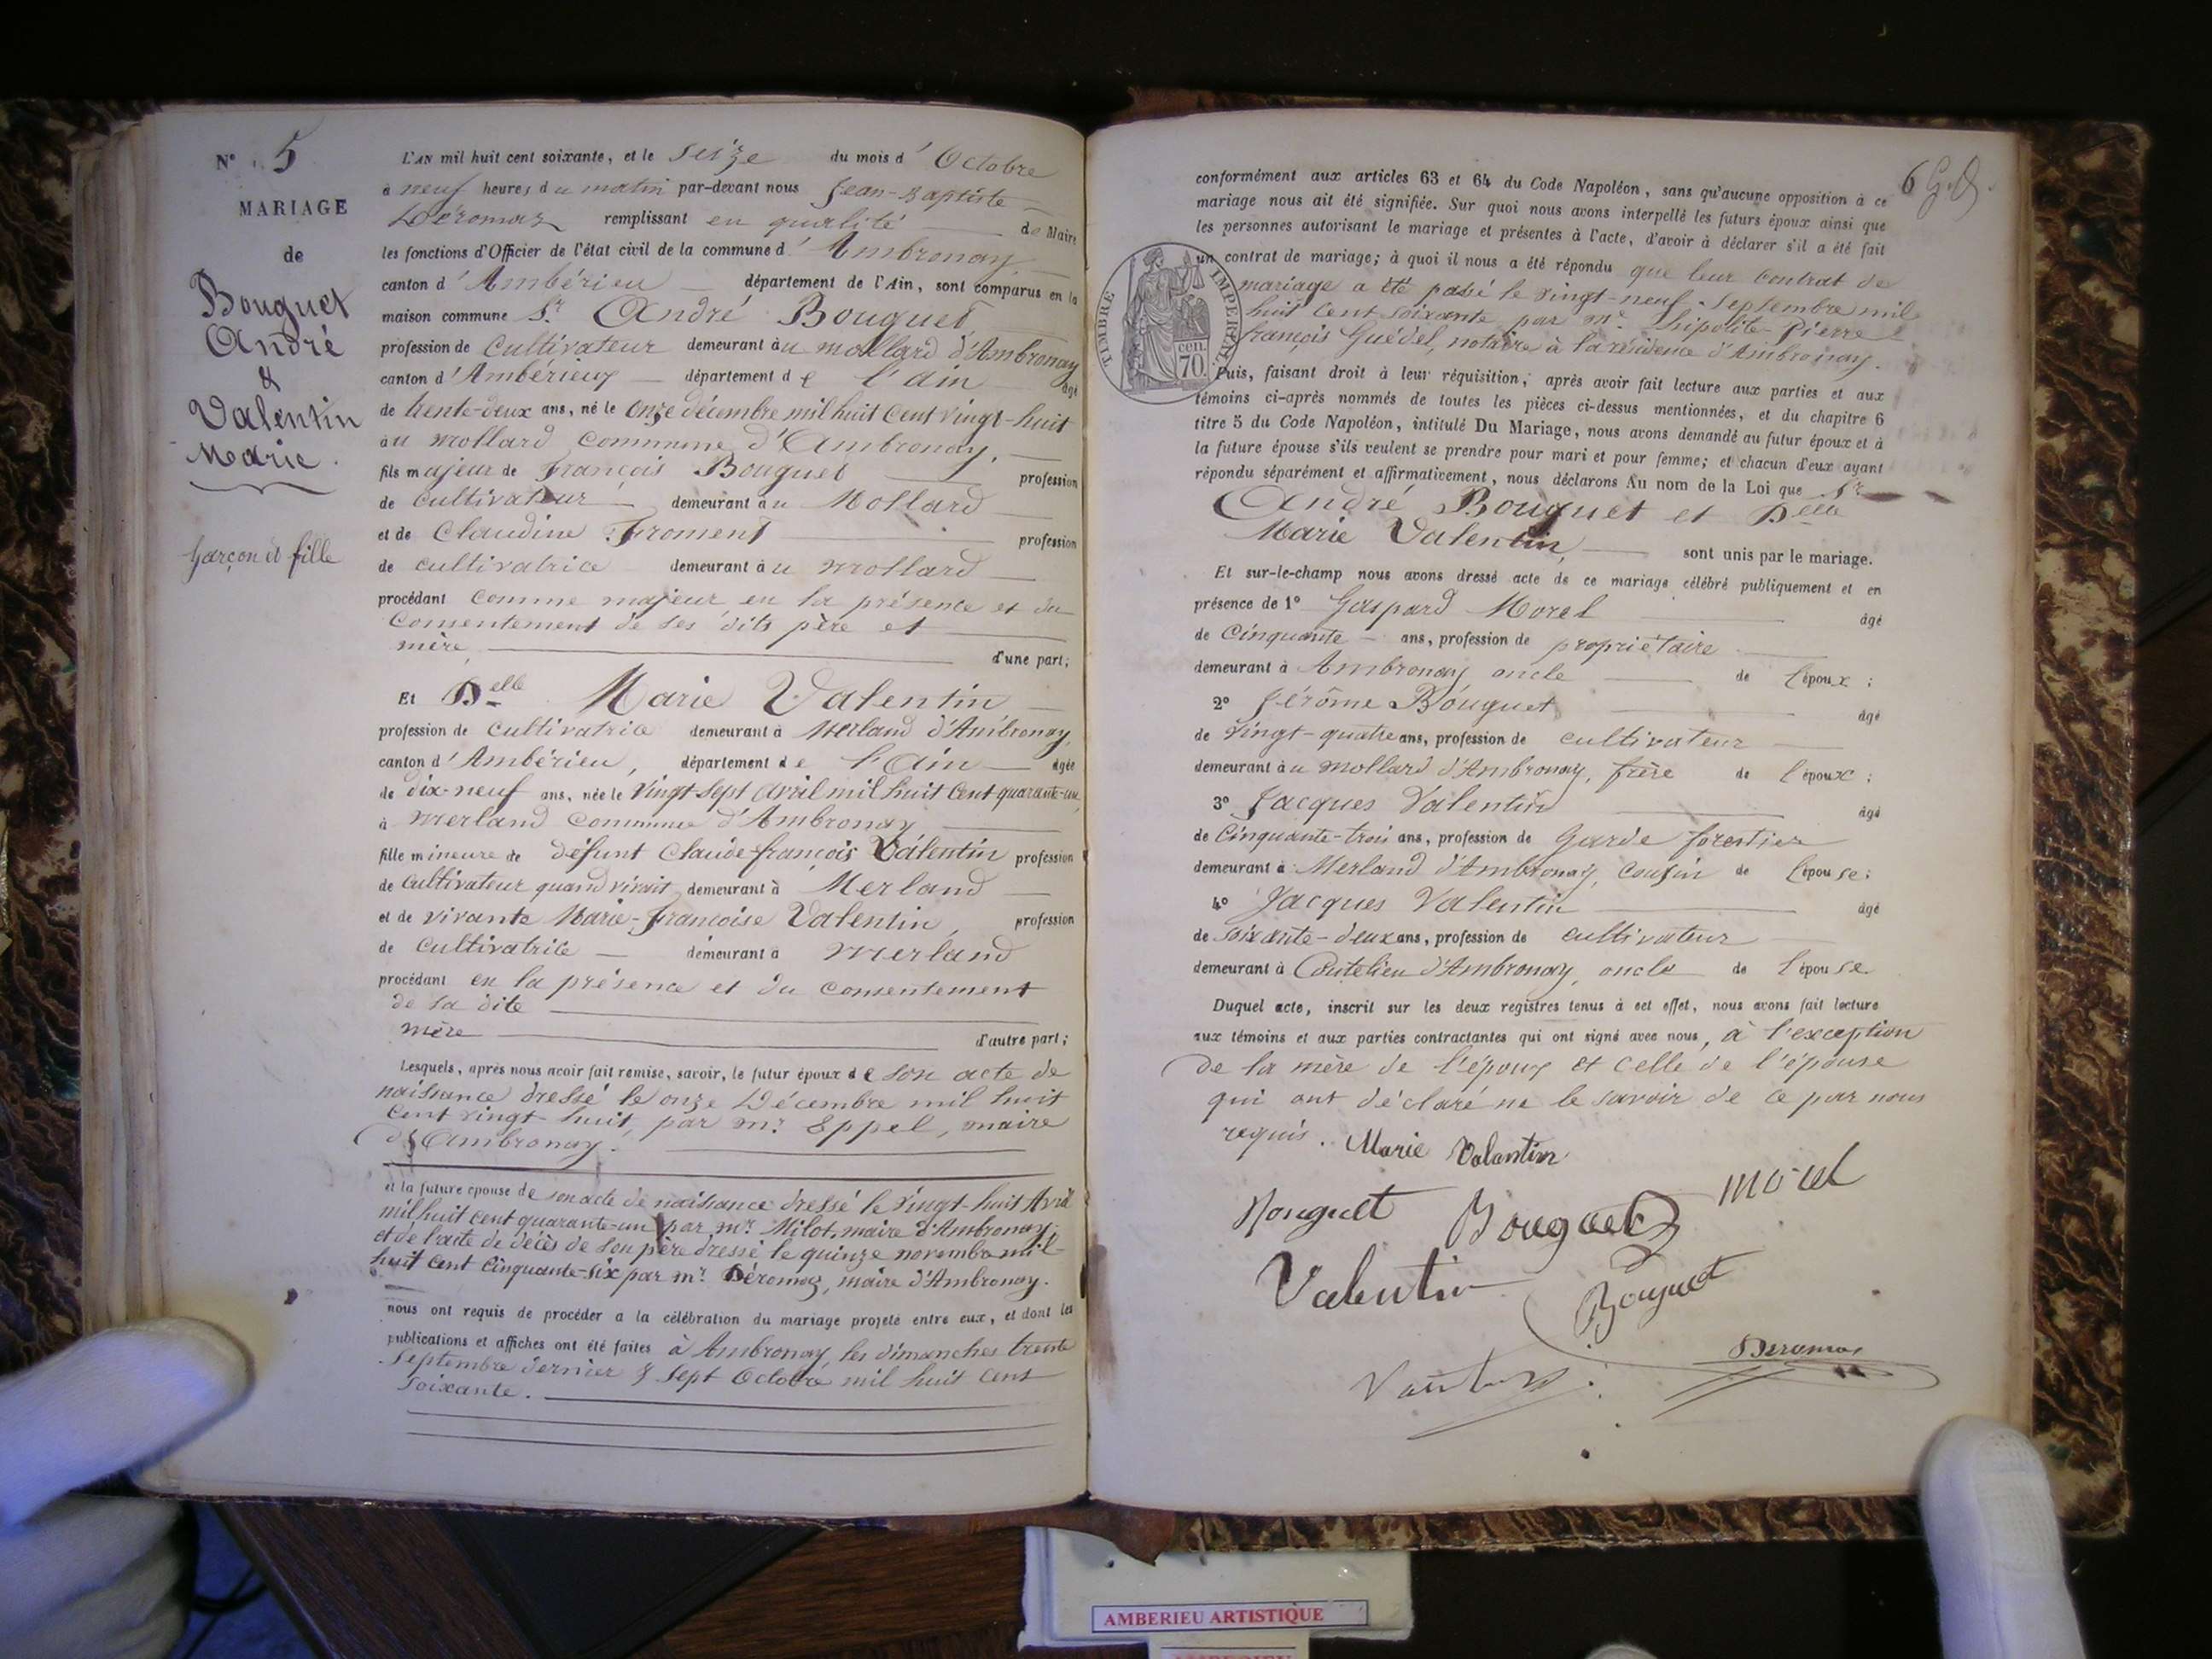 N° 5
MARIAGE
de
Bouguet
André
&
Valentin
Marie.
Garçon et fille
L'AN mil huit cent soixante, et le Seize du mois d'Octobre
à neuf heures du matin par-devant nous Jean-Baptiste
Déromas remplissant en qualité de Maire
les fonctions d'Officier de l'état civil de la commune d'Ambronay,
canton d'Ambérieu département de l'Ain, sont comparus en la
maison commune Sr André Bouguet,
profession de Cultivateur demeurant au mollard d'Ambronay
canton d'Ambérieux département de l'ain âgé
de trente-deux ans, né le Onze décembre mil huit Cent vingt-huit
au mollard commune d'Ambronay.
fils majeur de François Bouguet profession
de Cultivateur demeurant au Mollard
et de Claudine Froment profession
de cultivatrice demeurant au mollard
procédant comme majeur en la présence et du
Consentement de ses dits père et
mère d'une part;
Et Delle Marie Valentin
profession de Cultivatrice demeurant à Merland d'Ambronay,
canton d'Ambérieu, département de l'Ain âgée
de dix-neuf ans, née le Vingt sept Avril mil huit Cent quarante-un,
à Merland Commune d'Ambronay
fille mineure de défunt Claude-françois Valentin profession
de Cultivateur quand vivait, demeurant à Merland
et de vivante Marie-Françoise Valentin, profession
de Cultivatrice demeurant à Merland
procédant en la présence et du Consentement
de sa dite
mère d'autre part;
Lesquels, après nous avoir fait remise, savoir, le futur époux de son acte de
naissance dressé le onze Décembre mil huit
Cent vingt-huit, par mr. Eppel, maire
d'Ambronay.
et la future épouse de son acte de naissance dressé le Vingt-huit Avril
mil huit cent quarante-un par mr. Milot, maire d'Ambronay;
et de l'acte de décès de son père dressé le quinze novembre mil
huit Cent Cinquante-six par mr. Déromas, maire d'Ambronay.
nous ont requis de procéder à la célébration du mariage projeté entre eux, et dont les
publications et affiches ont été faites à Ambronay, les dimanches trente
Septembre dernier & Sept Octobre mil huit Cent
Soixante.
6
conformément aux articles 63 et 64 du Code Napoléon, sans qu'aucune opposition à ce
mariage nous ait été signifiée. Sur quoi nous avons interpellé les futurs époux ainsi que
les personnes autorisant le mariage et présentes à l'acte, d'avoir à déclarer s'il a été fait
un contrat de mariage; à quoi il nous a été répondu que leur Contrat de
mariage a été passé le vingt-neuf Septembre mil
huit Cent soixante par me. hipolite-Pierre
françois Guédel, notaire à la résidence d'Ambronay.
TIMBRE IMPERIAL
70 cen.
Puis, faisant droit à leur réquisition, après avoir fait lecture aux parties et aux
témoins ci-après nommés de toutes les pièces ci-dessus mentionnées, et du chapitre 6
titre 5 du Code Napoléon, intitulé Du Mariage, nous avons demandé au futur époux et à
la future épouse s'ils veulent se prendre pour mari et pour femme; et chacun d'eux ayant
répondu séparément et affirmativement, nous déclarons Au nom de la Loi que Sr
André Bouguet et Delle
Marie Valentin, sont unis par le mariage.
Et sur-le-champ nous avons dressé acte de ce mariage célébré publiquement et en
présence de 1° Gaspard Morel âgé
de Cinquante ans, profession de propriétaire
demeurant à Ambronay oncle de l'époux;
2° Jérôme Bouguet âgé
de Vingt-quatre ans, profession de cultivateur
demeurant au mollard d'Ambronay, frère de l'époux;
3° Jacques Valentin âgé
de Cinquante-trois ans, profession de Garde forestier
demeurant à Merland d'Ambronay, cousin de l'épouse;
4° Jacques Valentin âgé
de Soixante-deux ans, profession de cultivateur
demeurant à Coutelieu d'Ambronay, oncle de l'épouse
Duquel acte, inscrit sur les deux registres tenus à cet effet, nous avons fait lecture
aux témoins et aux parties contractantes qui ont signé avec nous, à l'exception
de la mère de l'époux et celle de l'épouse
qui ont déclaré ne le savoir de ce par nous
requis. Marie Valentin
Bouguet Bouguet morel
Valentin Bouguet
Deromas
AMBERIEU ARTISTIQUE